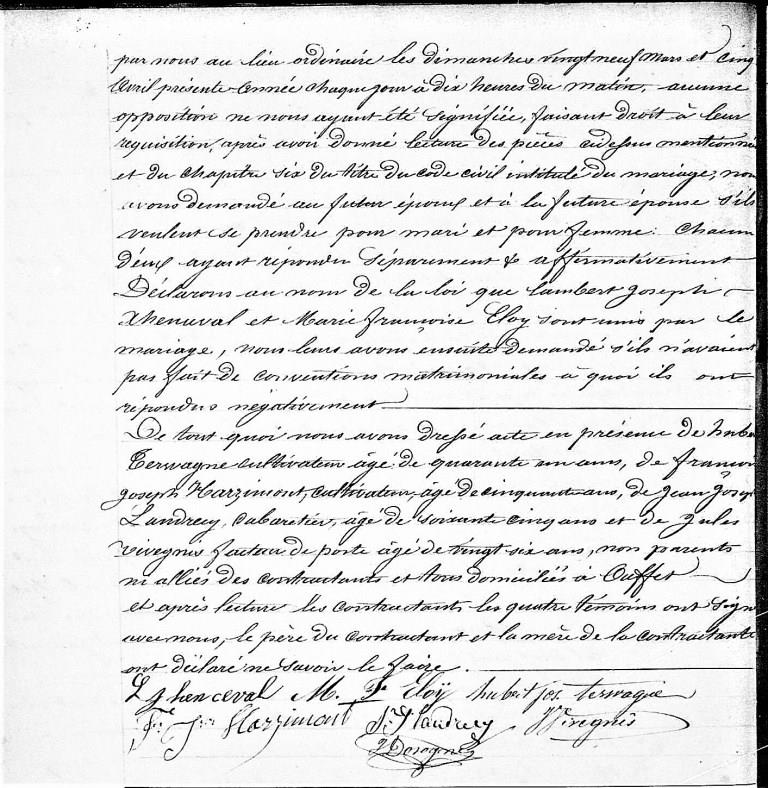 par nous au lieu ordinaire les dimanches vingt neuf Mars et cinq
Avril présente année chaque jour à dix heures du matin, aucune
opposition ne nous ayant été signifiée, faisant droit à leur
requisition, après avoir donné lecture des pièces cidessus mentionné
et du chapitre six du titre du code civil intitulé du mariage, nou
avons demandé au futur époux et à la future épouse s'ils
veulent se prendre pour mari et pour femme. Chacun
d'eux ayant répondu séparement & affirmativement
Déclarons au nom de la loi que Lambert Joseph
Xhenceval et Marie françoise Eloy sont unis par le
mariage, nous leurs avons ensuite demandé s'ils n'avaient
pas fait de conventions matrimoniales à quoi ils ont
répondus négativement
De tout quoi nous avons dressé acte en présence de hube
Terwagne cultivateur âgé de quarante un ans, de françoi
Joseph Harzimont, cultivateur, âgé de cinquante ans, de Jean Josep
Landrecy, cabaretier, âgé de soixante cinq ans et de Jules
Vivegnis facteur de poste âgé de vingt six ans, non parents
ni alliés des contractants et tous domiciliés à Ouffet
et après lecture les contractants les quatre témoins ont sign
avec nous, le père du contractant et la mère de la contractante
ont déclaré ne savoir le faire.
L J Xhenceval M. Fse Eloÿ hubert jos. terwagne
Fs Jh Harzimont J. J Landrecy J Vivegnis